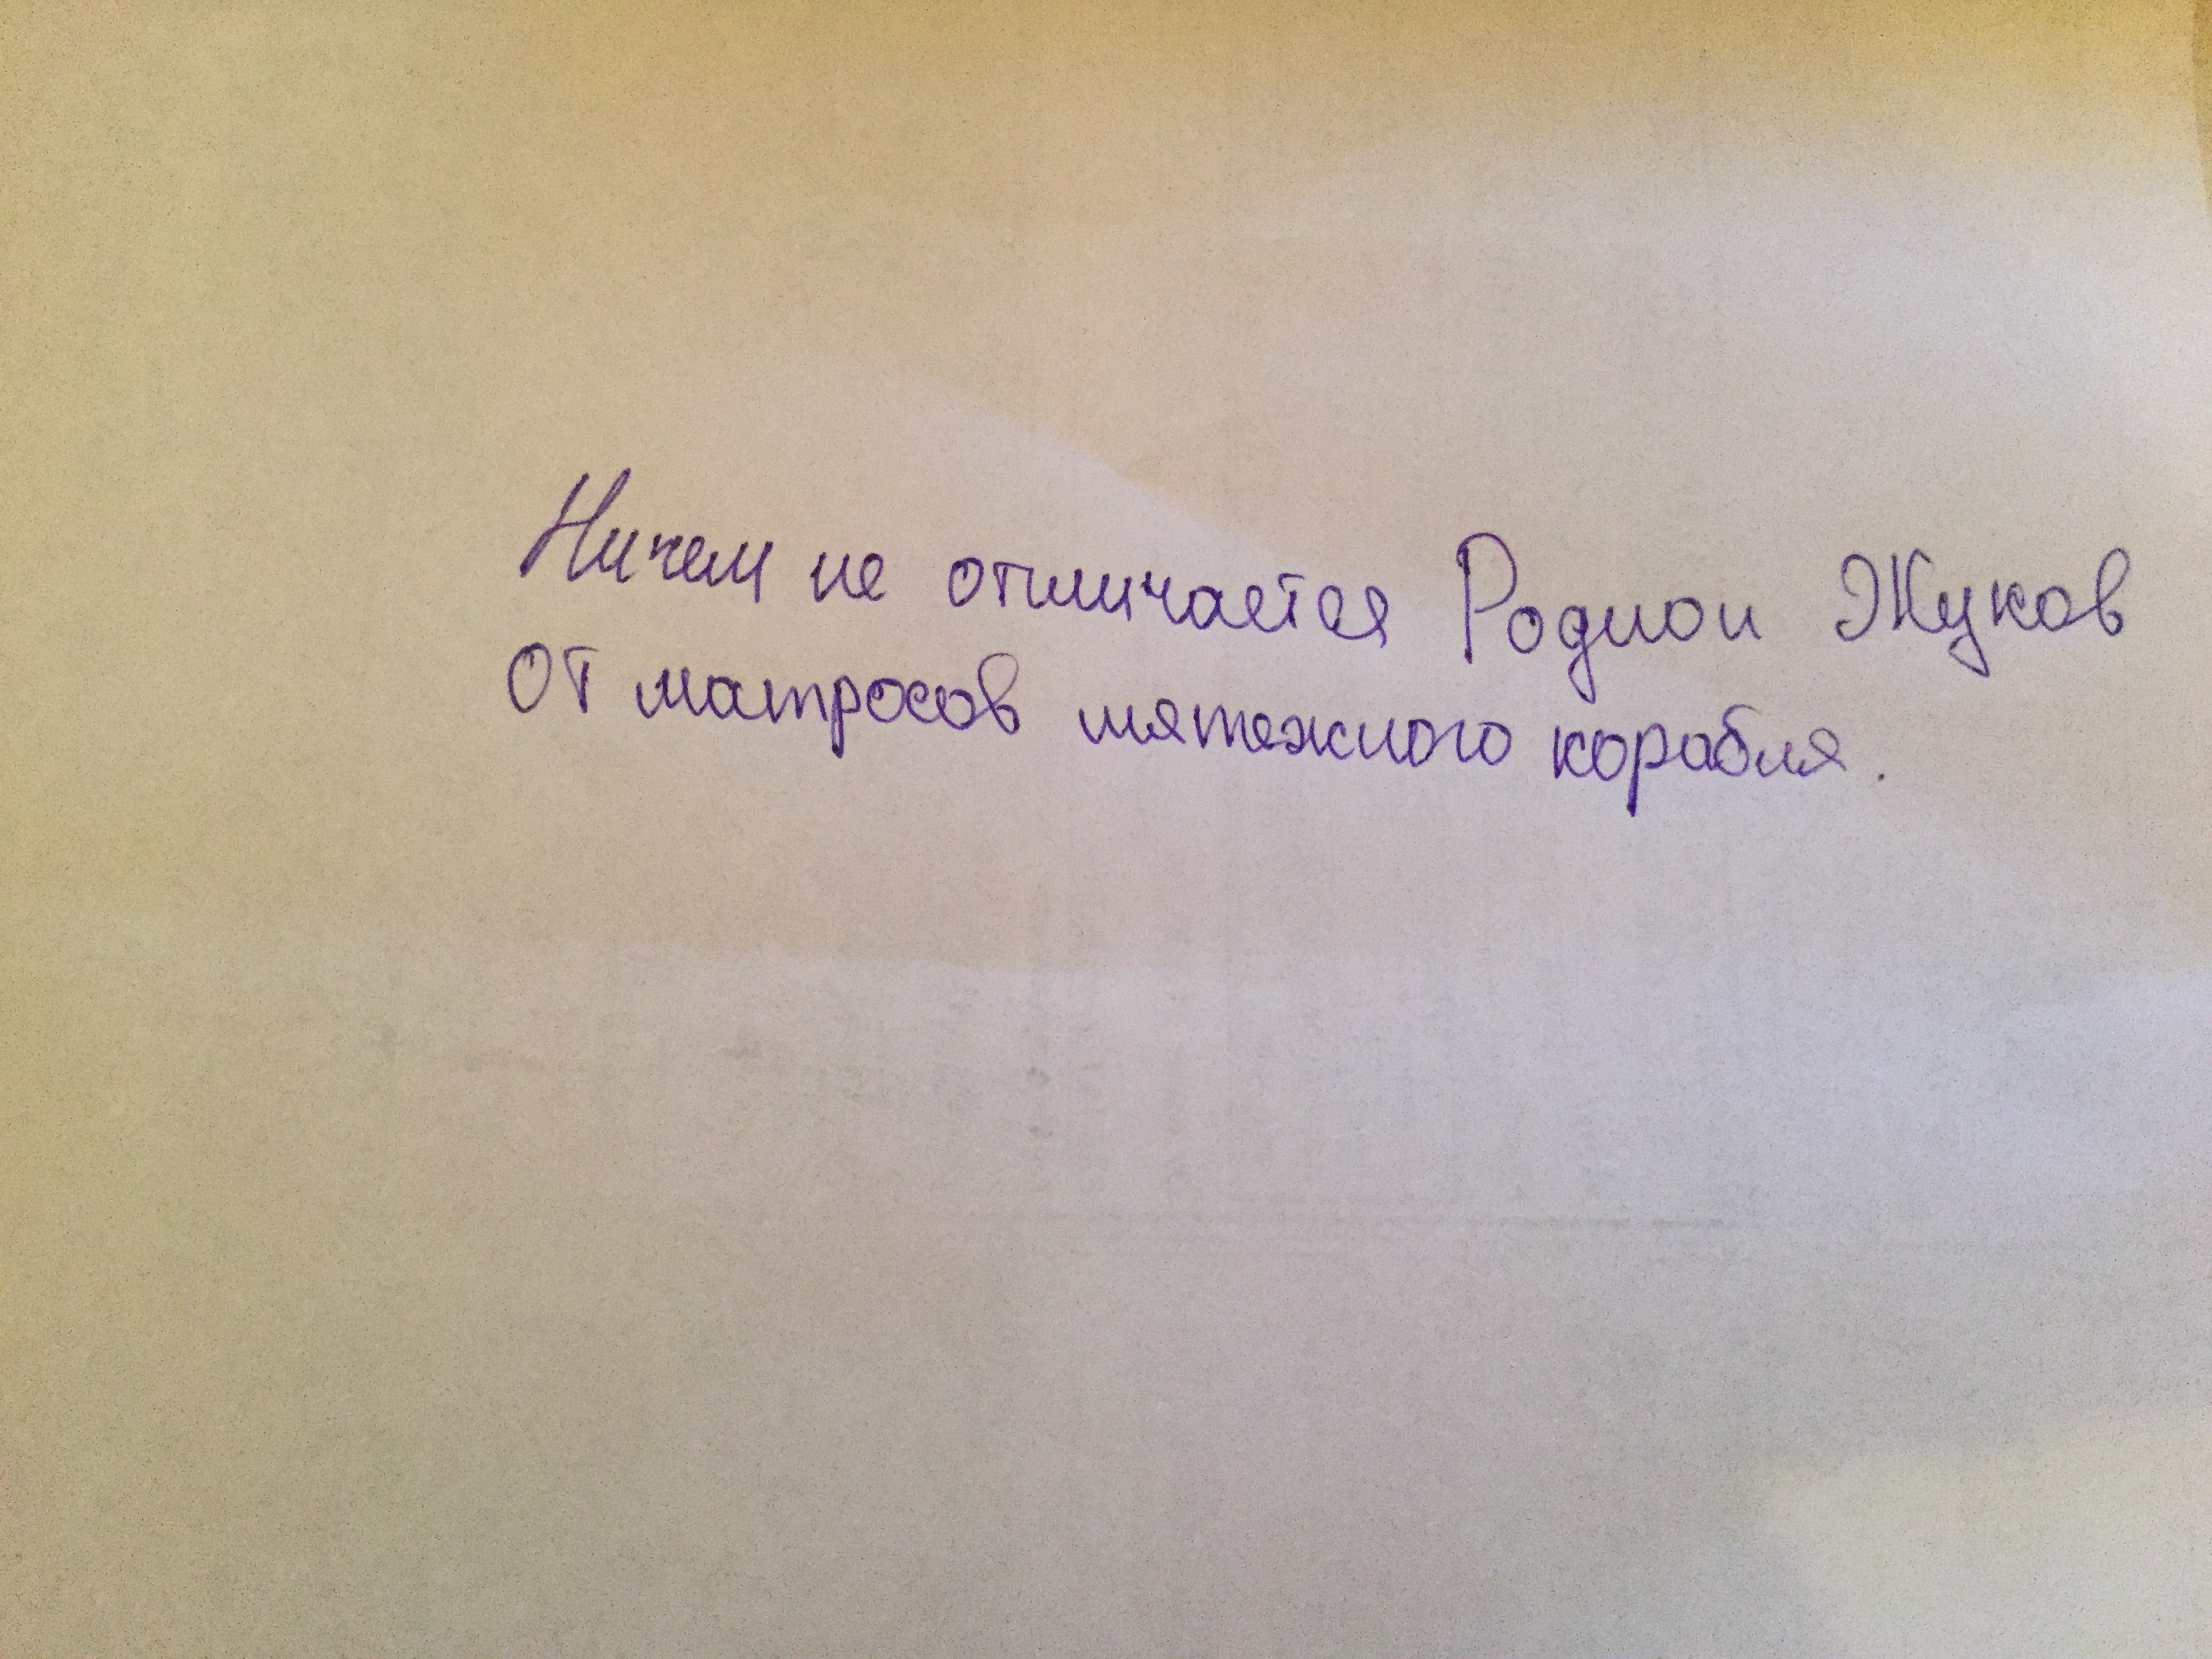 Ничем не отличается Родион Жуков
от матросов мятежного корабля.